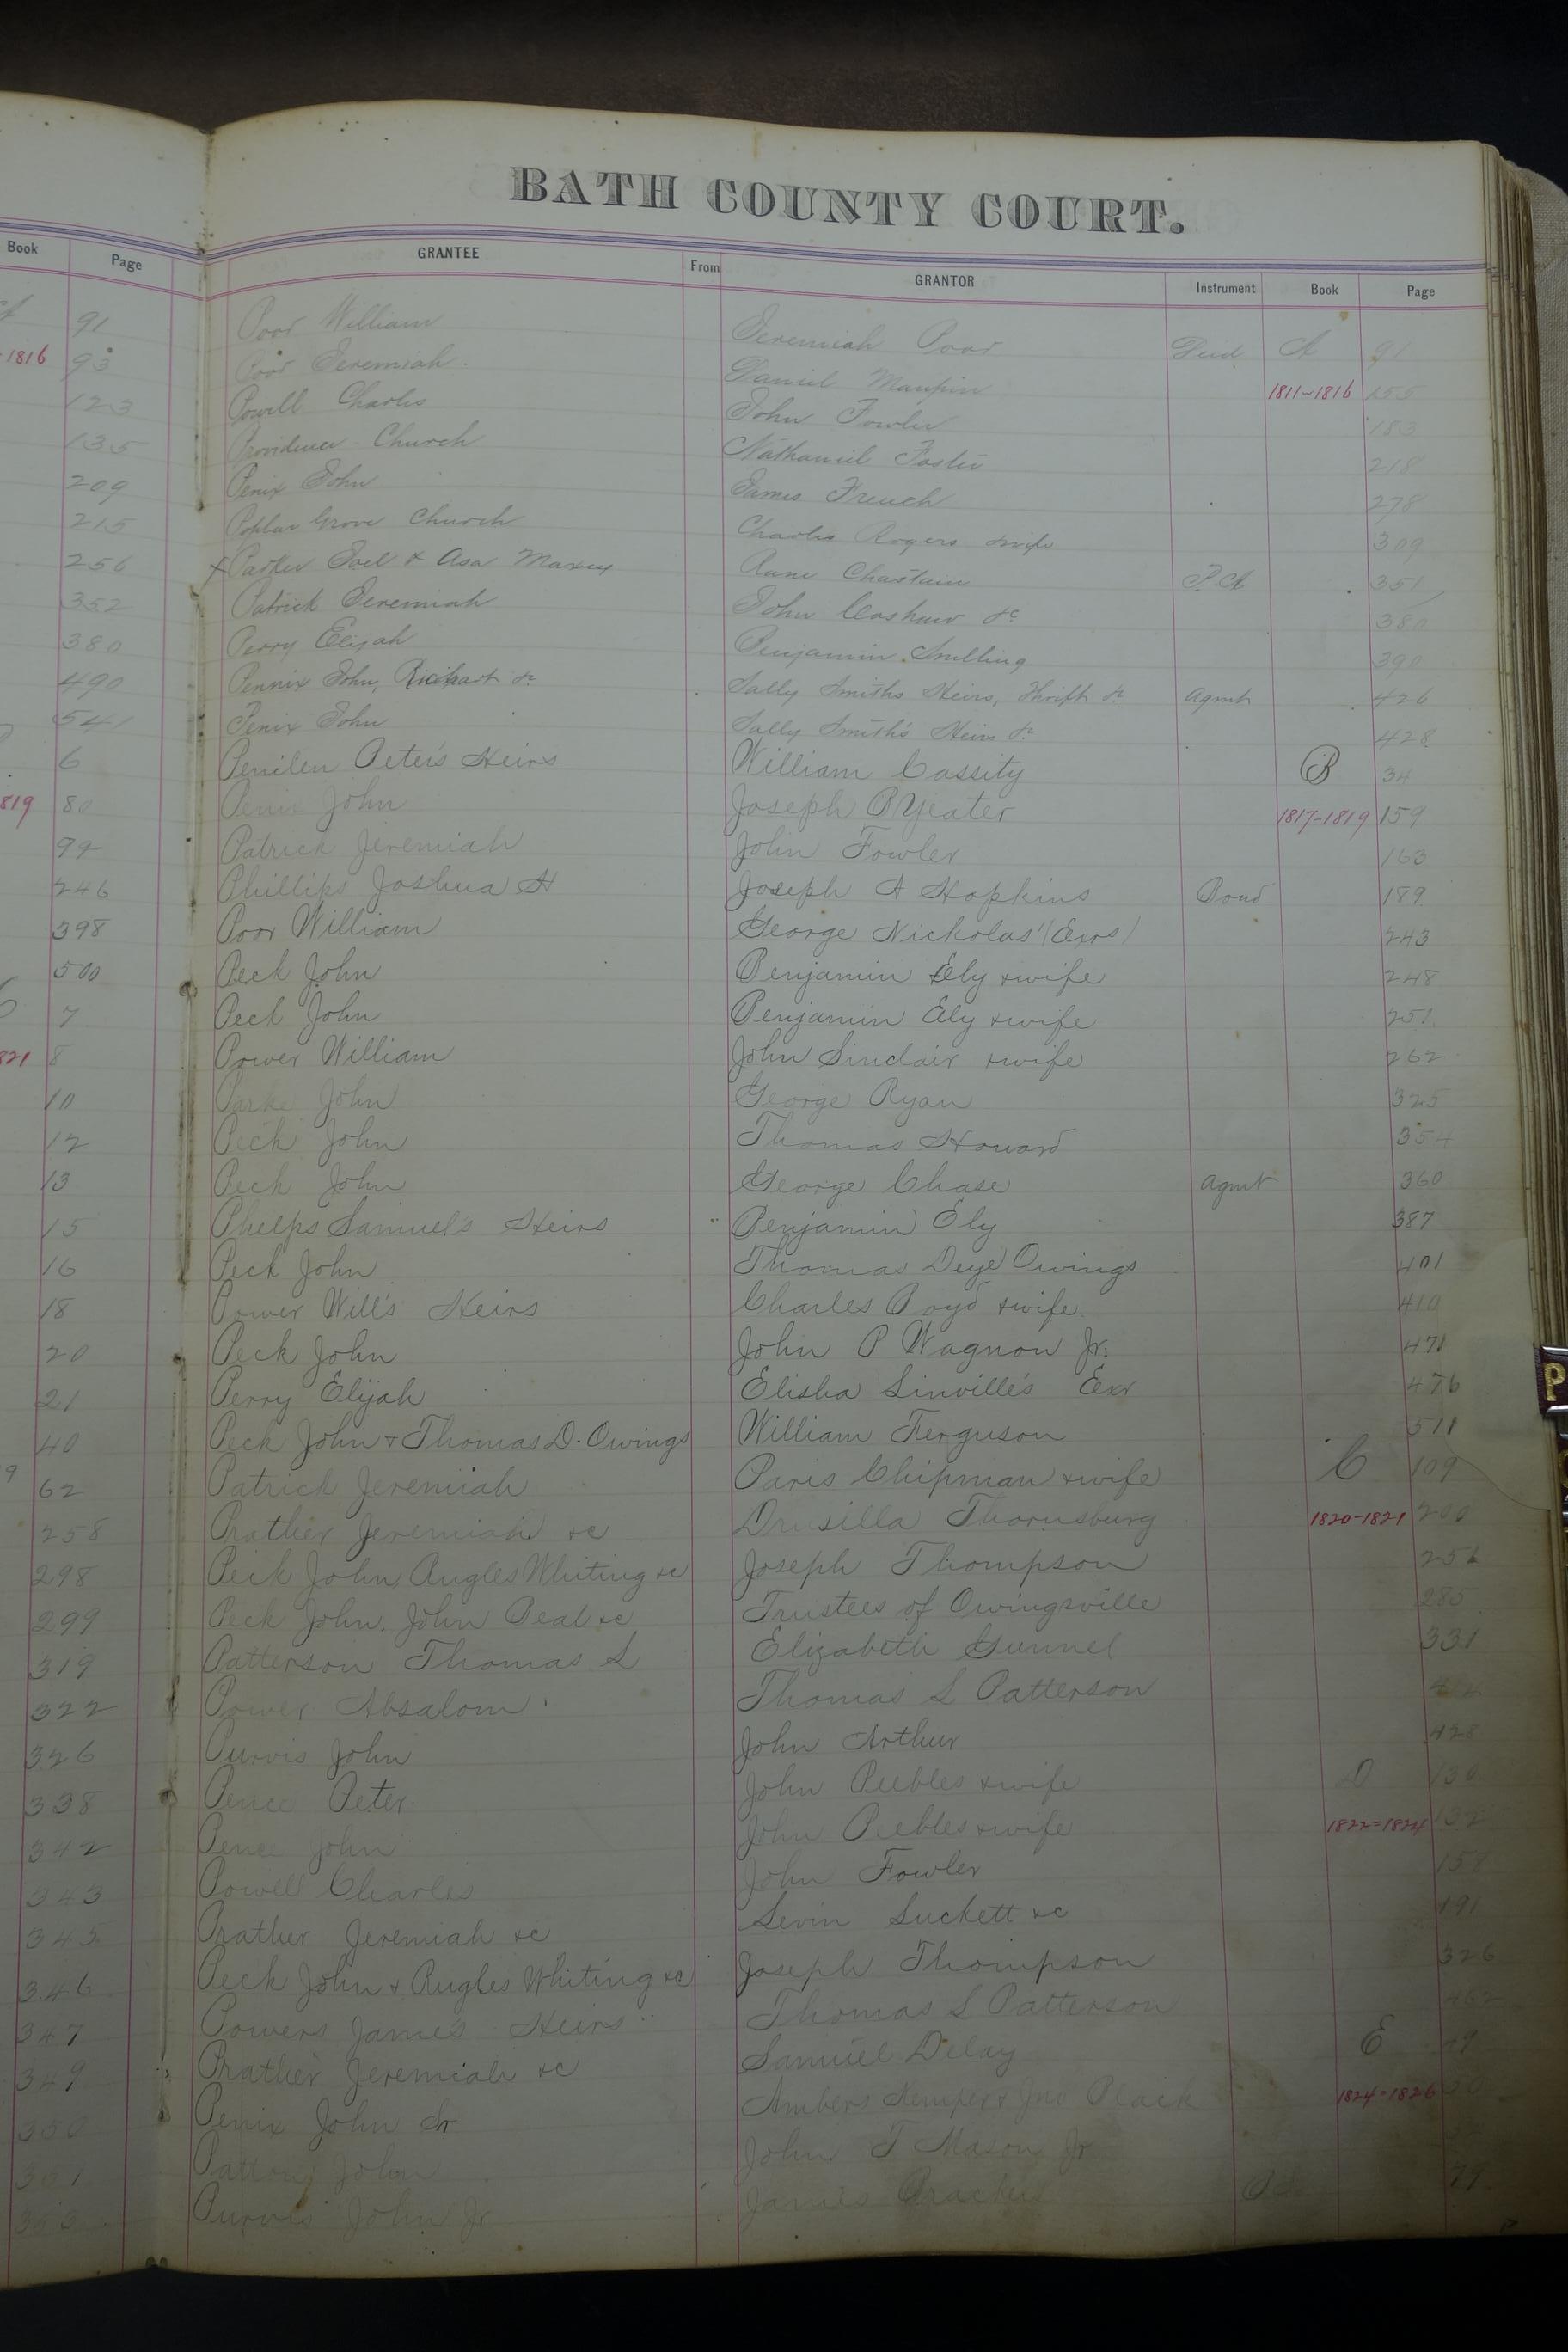 BATH COUNTY COURT.
Book Page GRANTEE From GRANTOR Instrument Book Page
91 Poor William Jeremiah Poor Deed A 91
1816 93 Poor Jeremiah Daniel Maupin 1811-1816 155
123 Powell Charles John Fowler 183
135 Providence Church Nathaniel Foster 218
209 Penix John James French 278
215 Poplar Grove Church Charles Rogers &wife 309
256 x Parker Joel & Asa Maxey Chastain P.A 351
352 Patrick Jeremiah John &c 380
380 Perry Elijah Benjamin Snelling 390
490 Pennix John, &c Sally Smiths Heirs, Thrift &c Agmt 426
541 Penix John Sally Smith's Heirs &c 428
6 Penilen Peter's Heirs William Cassity B 34
819 80 Penix John Joseph B Yeater 1817-1819 159
99 Patrick Jeremiah John Fowler 163
246 Phillips Joshua H Joseph A Hopkins Bond 189
398 Poor William George Nickolas' (Exrs) 243
500 Peck John Benjamin Ely &wife 248
7 Peck John Benjamin Ely &wife 251
821 8 Power William John Sinclair &wife 262
10 Park John George Ryan 325
12 Peck John Thomas Howard 354
13 Peck John George Chase Agmt 360
15 Phelps Samuel's Heirs Benjamin Ely 387
16 Peck John Thomas Deye Owings 401
18 Power Will's Heirs Charles Boyd &wife 410
20 Peck John John P Wagnon Jr. 471
21 Perry Elijah Elisha Linville's Exr 476
40 Peck John & Thomas D. Owings William Ferguson 511
62 Patrick Jeremiah Paris Chipman &wife C 109
258 Prather Jeremiah &c Drusilla Thornsburg 1820-1821 200
298 Peck John, Whiting &c Joseph Thompson 256
299 Peck John, John Beal &c Trustees of Owingsville 285
319 Patterson Thomas L Elizabeth Gunnel 331
322 Power Absalom Thomas L Patterson
326 Purvis John John Arthur 428
338 Pence Peter John Peebles &wife D 130
342 Pence John John Peebles &wife 1822=1824 132
343 Powell Charles John Fowler 158
345 Prather Jeremiah &c Levin Luckett &c 191
346 Peck John & Rugles Whiting &c Joseph Thompson 326
347 Powers James Heirs Thomas L Patterson
349 Prather Jeremiah &c Samuel Delay E
350 Penix John Sr Jno 1824-1826
361 Patton John John T Mason Jr
Purvis John Jr James 79
P